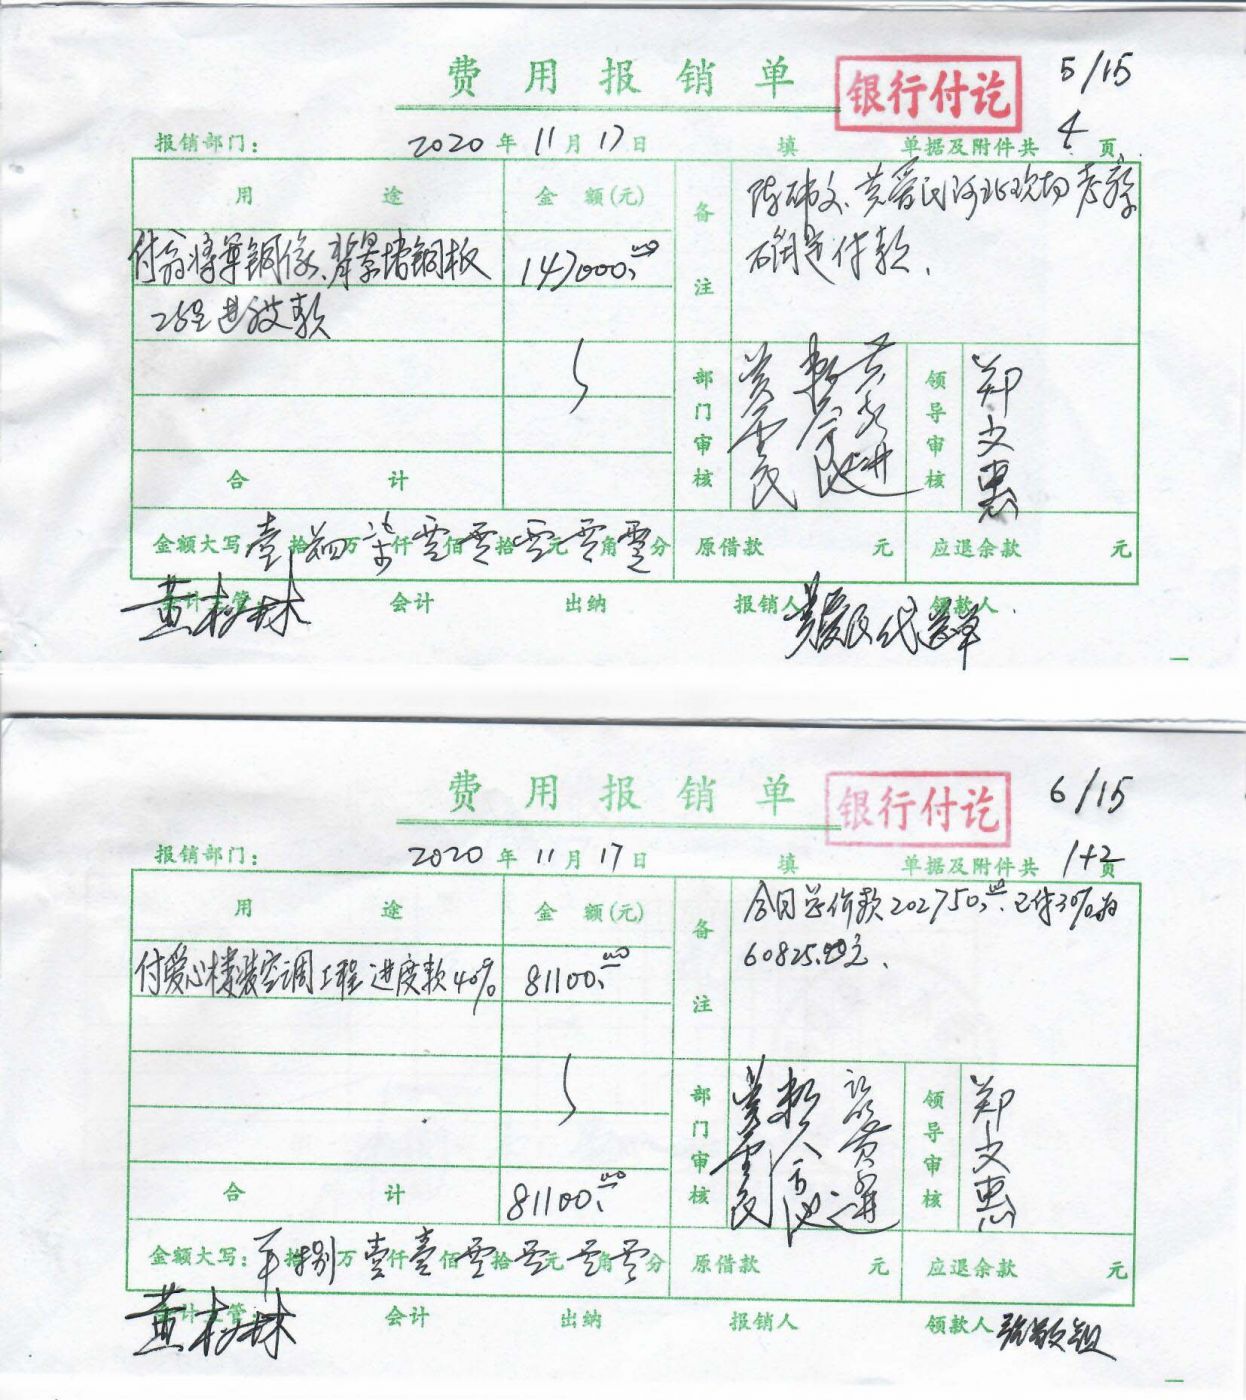 费用报销单
银行付讫
5/15
报销部门：
2020年11月17日
填
单据及附件共4页
用途
金额(元)
备注
陈伟文、黄爱民河北现场考察
确定付款、
付翁将军铜像、背景墙铜板
147000.00
进度款
部门审核
领导审核
郑文惠
合计
金额大写 壹拾肆万柒仟零佰零拾零元零角零分
原借款 元
应退余款 元
会计主管
黄树林
会计
出纳
报销人
领款人
费用报销单
银行付讫
6/15
报销部门：
2020年11月17日
填
单据及附件共1+2页
用途
金额(元)
备注
合同总价款202750.00.已付30%为
60825.00元、
付爱心楼装空调工程进度款40%
81100.00
部门审核
领导审核
郑文惠
合计
81100.00
金额大写： 拾捌万壹仟壹佰零拾零元零角零分
原借款 元
应退余款 元
会计主管
黄树林
会计
出纳
报销人
领款人